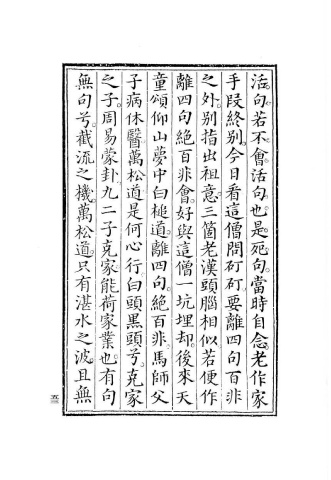 活句若不會活句也是死句當時自念老作家
手段終別今日看這僧問矴矴要離四句百非
之外別指出祖意三箇老漢頭腦相似若便作
離四句絕百非會好與這僧一坑埋却後來天
童頌仰山夢中白槌道離四句絕百非馬師父
子病休醫萬松道是何心行白頭黑頭兮克家
之子周易蒙卦九二子克家能荷家業也有句
無句兮截流之機萬松道只有湛水之波且無
五三